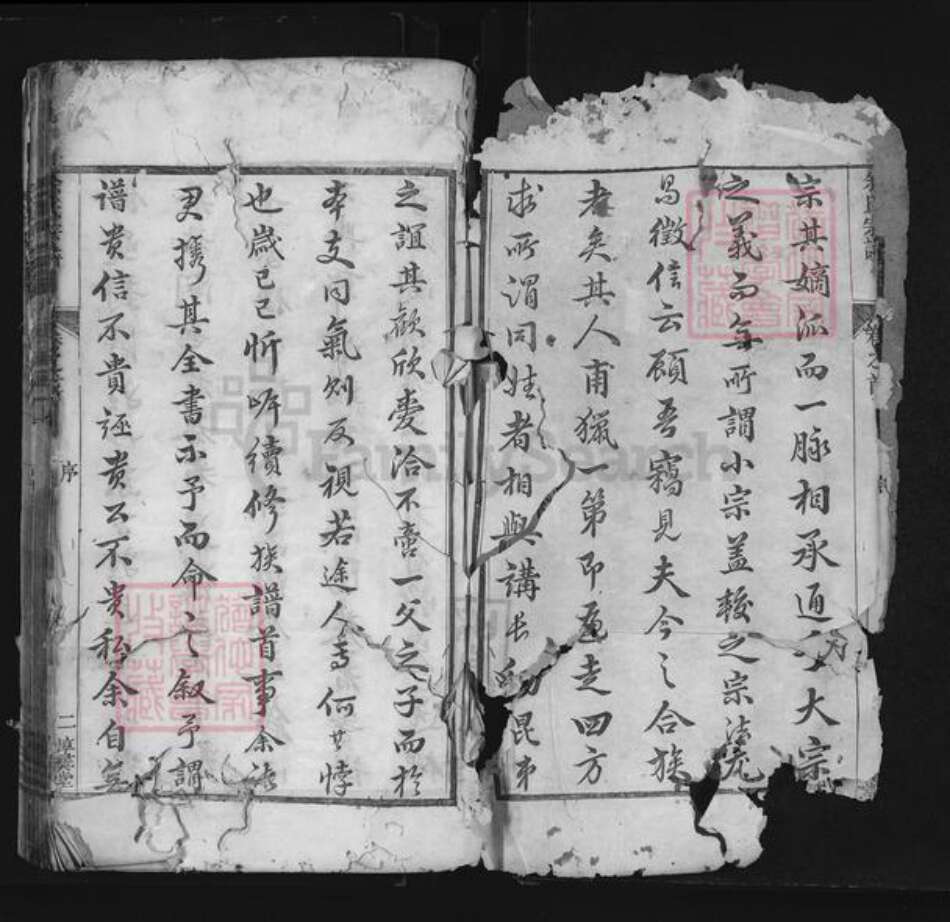 宗其嫡派而一脉相承通為大宗
之義而無所謂小宗蓋較之宗法尤
易徵信云顧吾竊見夫今之合族
者矣其人甫獵一第即遍走四方
求所謂同姓者相與講長幼昆弟
之誼其歡欣愛洽不啻一父之子而於
本支同氣則反視若途人焉何其悖
也歲己巳忻
續修族譜首事余
君攜其全書示予而命之敘予謂
譜貴信不貴誣貴公不貴私余自
序
二
FamilySearch